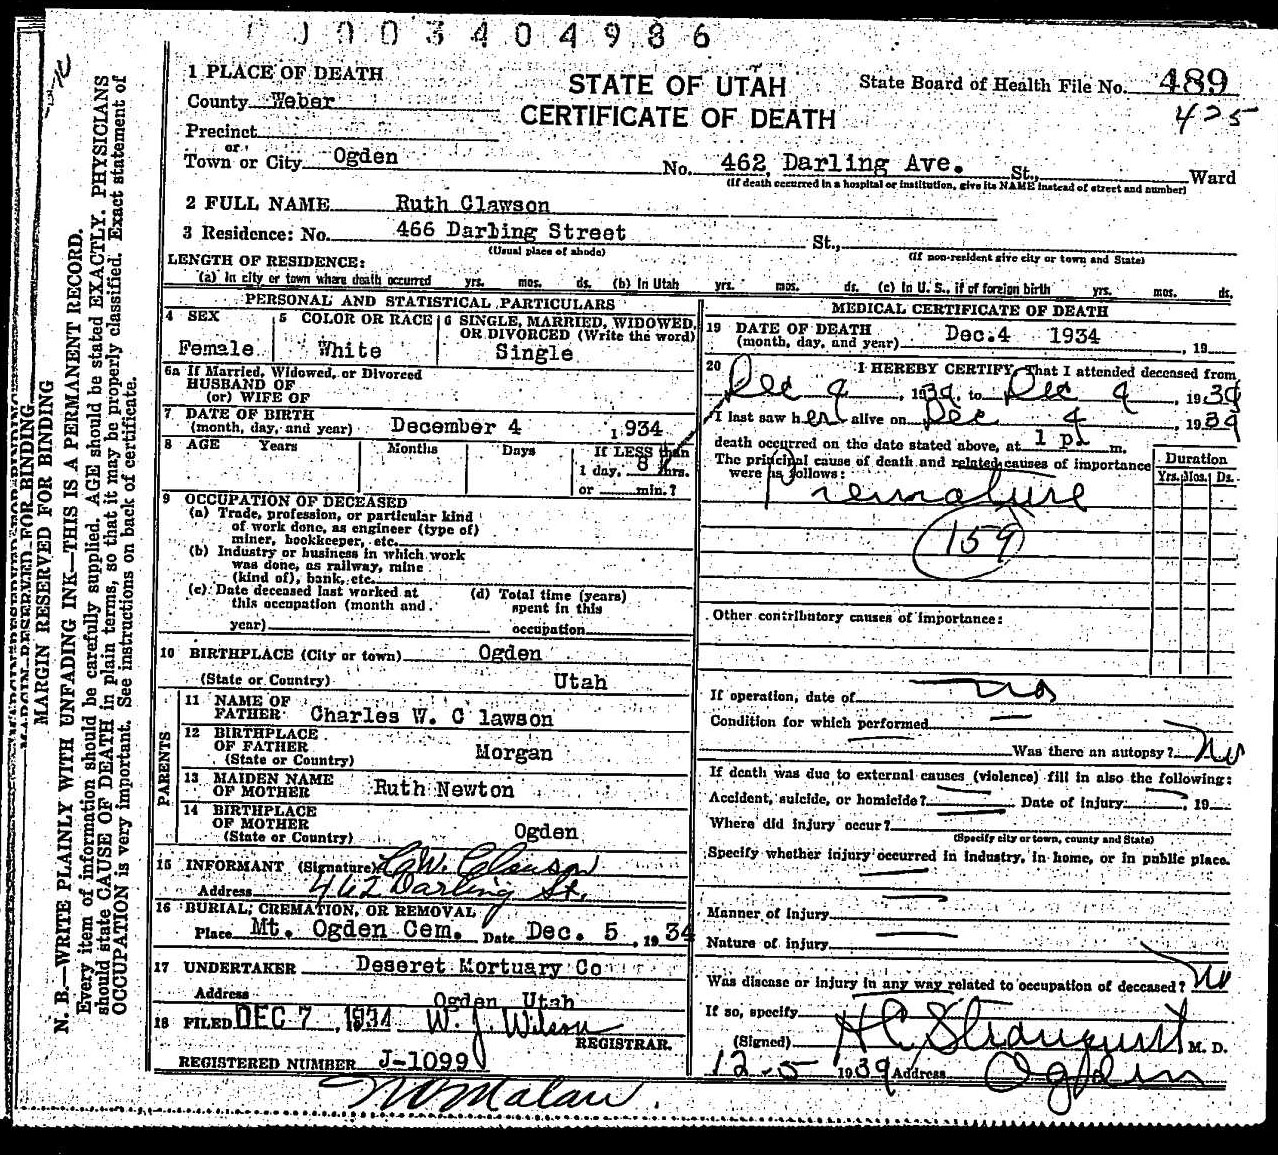 0003404986
1 PLACE OF DEATH
STATE OF UTAH
CERTIFICATE OF DEATH
State Board of Health File No. 489
425
County Weber
Precinct
or
Town or City Ogden No. 462, Darling Ave. St., Ward
(If death occurred in a hospital or institution, give its NAME instead of street and number)
2 FULL NAME Ruth Clawson
3 Residence: No. 466 Darling Street St.,
(Usual place of abode) (If non-resident give city or town and State)
LENGTH OF RESIDENCE:
(a) In city or town where death occurred yrs. mos. ds. (b) In Utah yrs. mos. ds. (c) In U. S., if of foreign birth yrs. mos. ds.
PERSONAL AND STATISTICAL PARTICULARS
4 SEX
Female
5 COLOR OR RACE
White
6 SINGLE, MARRIED, WIDOWED,
OR DIVORCED (Write the word)
Single
6a If Married, Widowed, or Divorced
HUSBAND OF
(or) WIFE OF
7 DATE OF BIRTH
(month, day, and year) December 4 1934
8 AGE Years Months Days If LESS than
1 day, 8 hrs.
or min.?
9 OCCUPATION OF DECEASED
(a) Trade, profession, or particular kind
of work done, as engineer (type of)
miner, bookkeeper, etc.
(b) Industry or business in which work
was done, as railway, mine
(kind of), bank, etc.
(c) Date deceased last worked at
this occupation (month and
year)
(d) Total time (years)
spent in this
occupation
10 BIRTHPLACE (City or town) Ogden
(State or Country) Utah
PARENTS
11 NAME OF
FATHER Charles W. C lawson
12 BIRTHPLACE
OF FATHER
(State or Country) Morgan
13 MAIDEN NAME
OF MOTHER Ruth Newton
14 BIRTHPLACE
OF MOTHER
(State or Country) Ogden
15 INFORMANT (Signature) C.W. Clawson
Address 462 Darling St.
16 BURIAL, CREMATION, OR REMOVAL
Place Mt. Ogden Cem. Date Dec. 5, 1934
17 UNDERTAKER Deseret Mortuary Co
Address Ogden Utah
18 FILED DEC 7, 1934 W. J. Wilson
REGISTRAR.
REGISTERED NUMBER J-1099
MEDICAL CERTIFICATE OF DEATH
19 DATE OF DEATH
(month, day, and year) Dec.4 1934, 19
20 I HEREBY CERTIFY, That I attended deceased from
Dec 4, 1934, to Dec 4, 1934
I last saw her alive on Dec 4, 1934
death occurred on the date stated above, at 1 p. m.
The principal cause of death and related causes of importance
were as follows:
Duration
Yrs. Mos. Ds.
Premature
159
Other contributory causes of importance:
If operation, date of no
Condition for which performed
Was there an autopsy? No
If death was due to external causes (violence) fill in also the following:
Accident, suicide, or homicide? Date of injury, 19
Where did injury occur?
(Specify city or town, county and State)
Specify whether injury occurred in industry, in home, or in public place.
Manner of injury
Nature of injury
Was disease or injury in any way related to occupation of deceased? No
If so, specify
(Signed) H C Stranquist M. D.
12-5 1934 Address Ogden
MARGIN RESERVED FOR BINDING
N. B.—WRITE PLAINLY WITH UNFADING INK—THIS IS A PERMANENT RECORD.
Every item of information should be carefully supplied. AGE should be stated EXACTLY. PHYSICIANS
should state CAUSE OF DEATH in plain terms, so that it may be properly classified. Exact statement of
OCCUPATION is very important. See instructions on back of certificate.